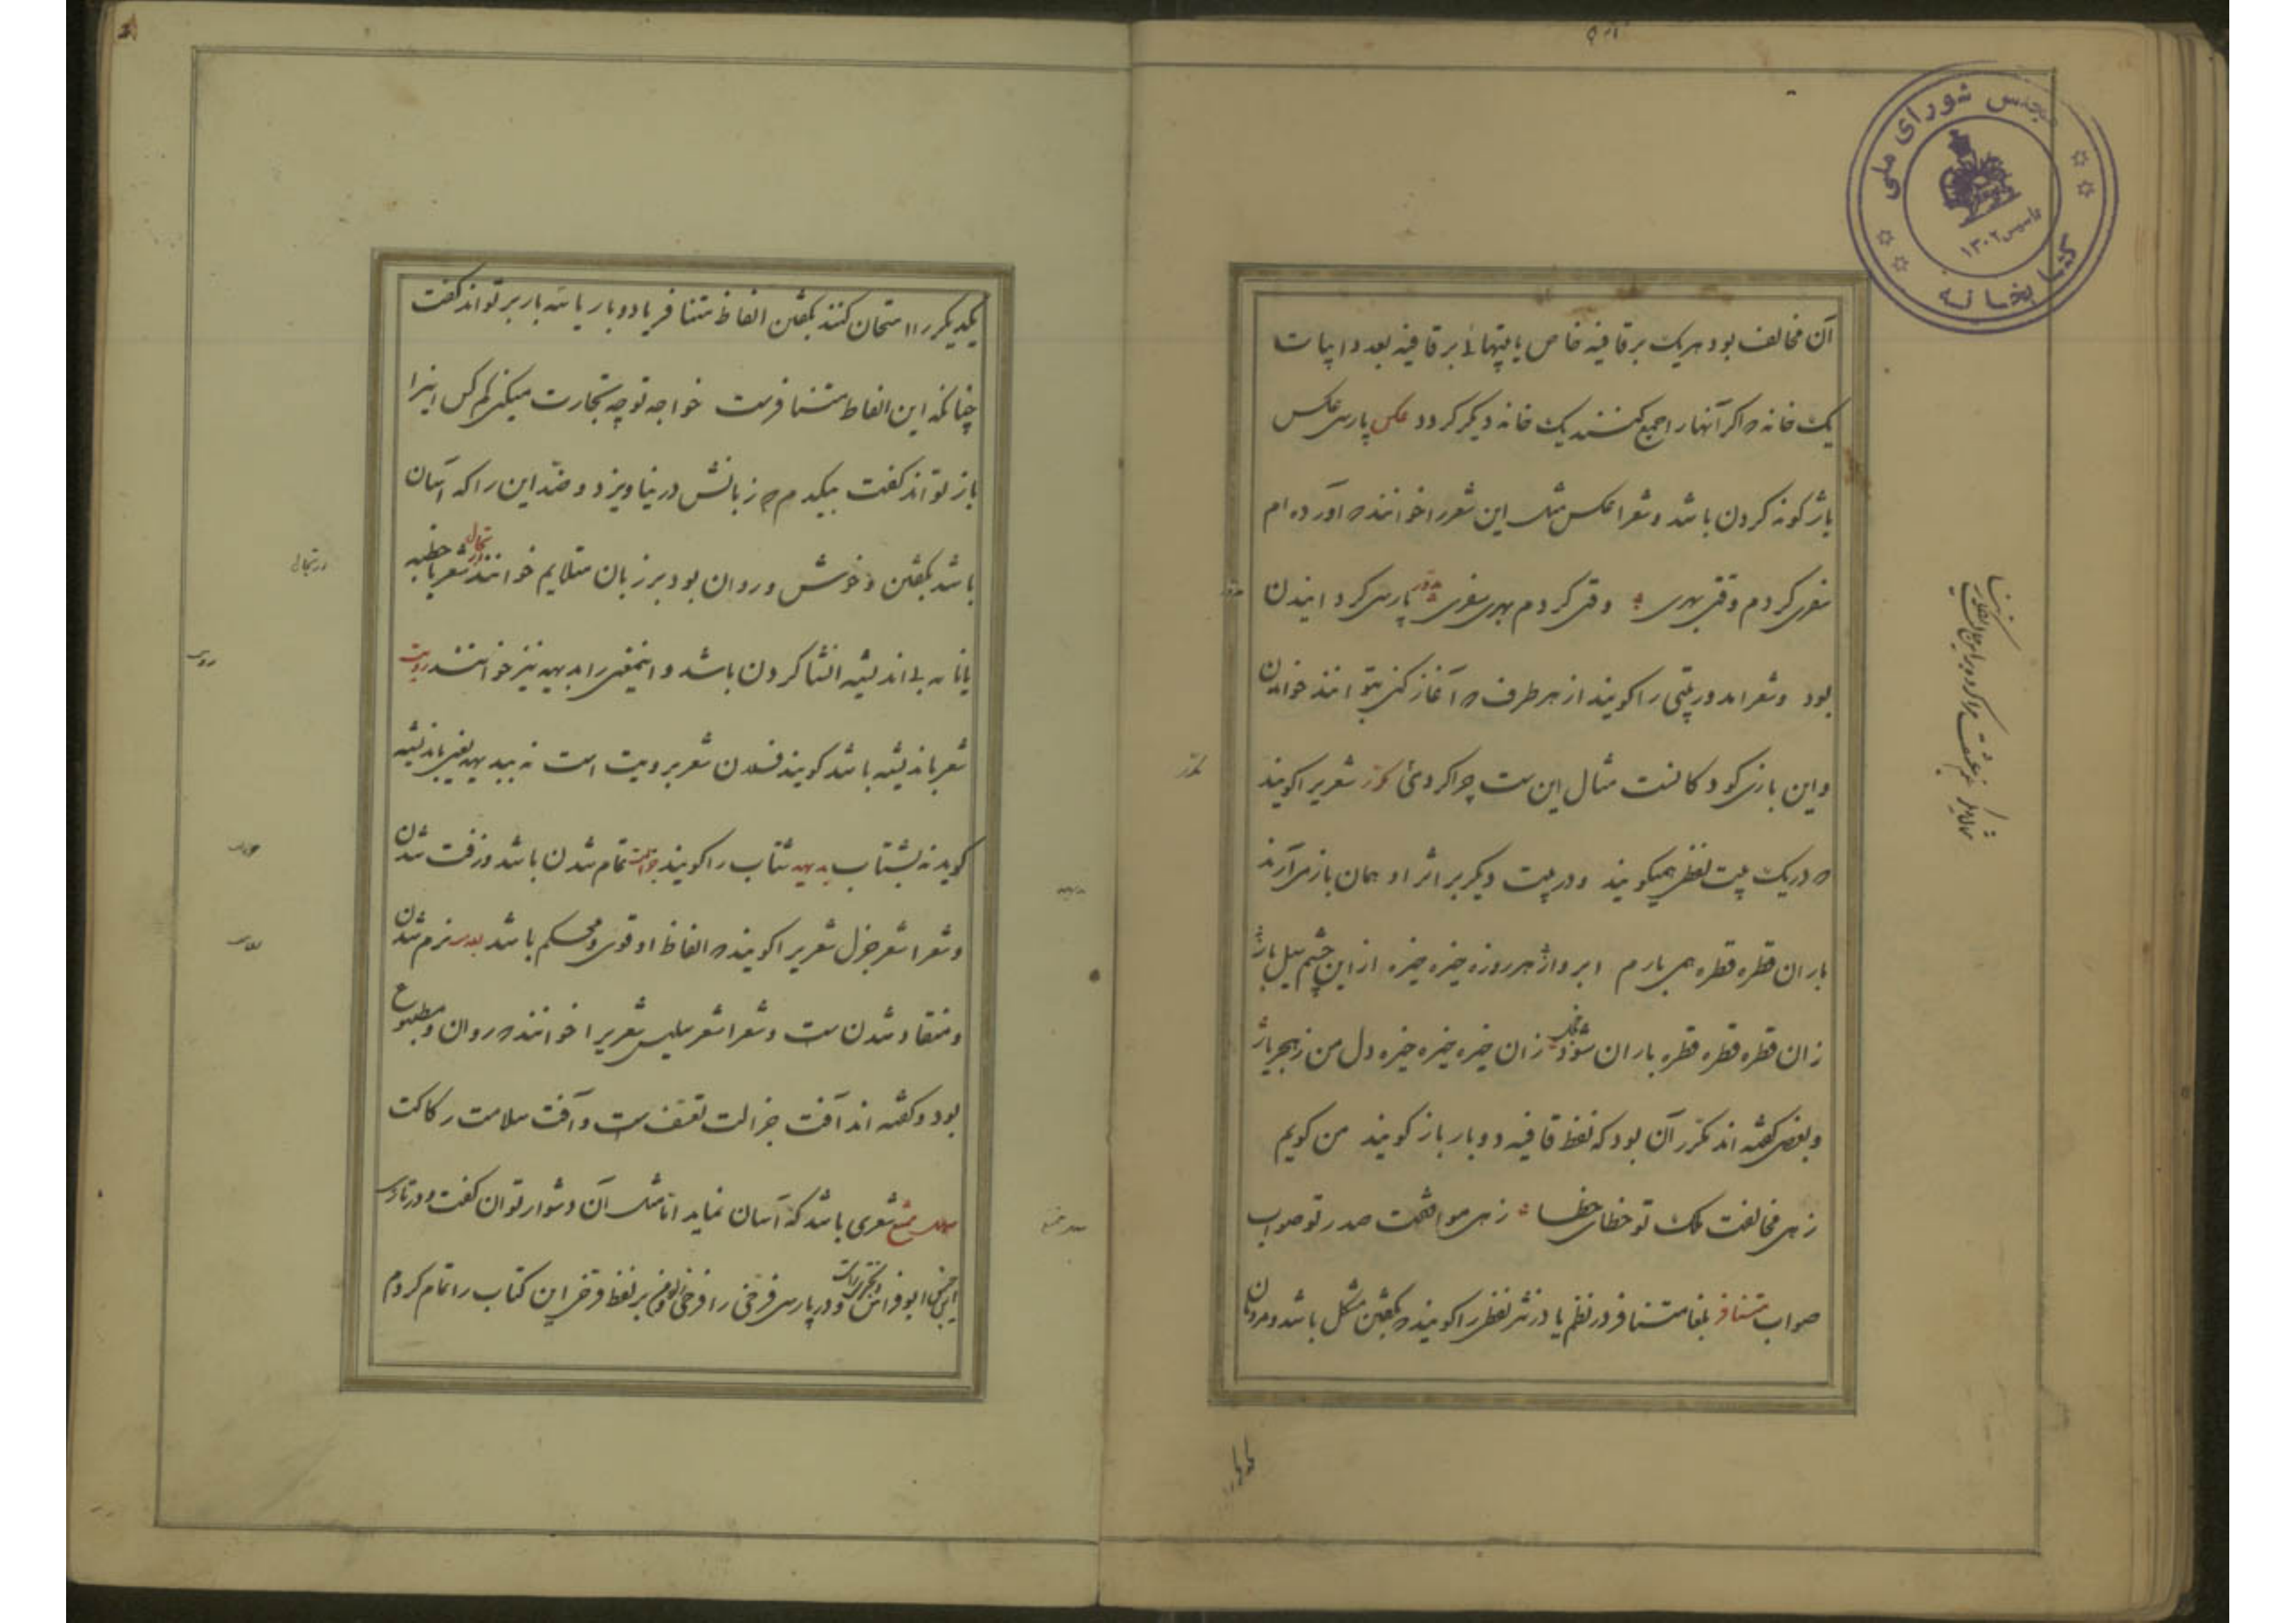 آن مخالف بود هر یک بر قافیه خاص یا بیتهائی بر قافیه بعدد ابیات
یک خانه که اگر آنها را جمع کنند یک خانه دیگر گردد عکس پارسی عکس
باژگونه کردن باشد و شعرا عکس مثل این شعر را خوانند که آورده ام
سفری کردم وقتی بهری وقتی کردم بهری سفری مدور پارسی گردانیدن
بود و شعرا مدور بیتی را گویند از هر طرف که آغاز کنی بتوانند خواندن
و این بازی کودکانست مثال این ست چرا کردی مکرر شعریرا گویند
که در یک بیت لفظی همیگویند و در بیت دیگر بر اثر او همان باز می آرند
باران قطره قطره همی بارم ابروار هر روزه خیره خیره ازین چشم سیل بار
زان قطره قطره قطره باران شود خجل زان خیره خیره خیره دل من ز هجر یار
و بعضی گفته اند مکرر آن بود که لفظ قافیه دوبار باز گویند من گویم
زهی مخالفت ملک تو خطای خطا زهی موافقت صدر تو صواب
صواب متنافر بلغا متنافر در نظم یا در نثر لفظی را گویند که بگفتن مشکل باشد و مردمان
یکدیگر را امتحان کنند بگفتن الفاظ متنافر یا دو بار یا سه بار بر تواند گفت
چنانکه این الفاظ متنافرست خواجه تو چه تجارت میکنی کم کس اینرا
باز تواند گفت بیکدم که زبانش در نیاویزد و ضد این را که آسان
باشد بگفتن و خوش و روان بود بر زبان متلایم خوانند ارتجال شعر یا خطبه
یا نامه بی اندیشه انشا کردن باشد و اینمعنی را بدیهه نیز خوانند رویت
شعر باندیشه باشد گویند فلان شعر برویت است نه ببدیهه یعنی باندیشه
گوید نه بشتاب بدیهه شتاب را گویند جزالت تمام شدن باشد و زفت شدن
و شعرا شعر جزل شعریرا گویند که الفاظ او قوی و محکم باشد سلاست نرم شدن
و منقاد شدن ست و شعرا شعر سلیس شعریرا خوانند که روان و مطبوع
بود و گفته اند آفت جزالت تعسف ست و آفت سلاست رکاکت
سهل ممتنع شعری باشد که آسان نماید اما مثل آن دشوار توان گفت و در تازی
ابوفراس و بحتری راست و در پارسی فرخی را فرخی بر لفظ فرخی این کتاب را تمام کردم
مجلس شورای ملی
کتابخانه
تاسیس ۱۳۰۲